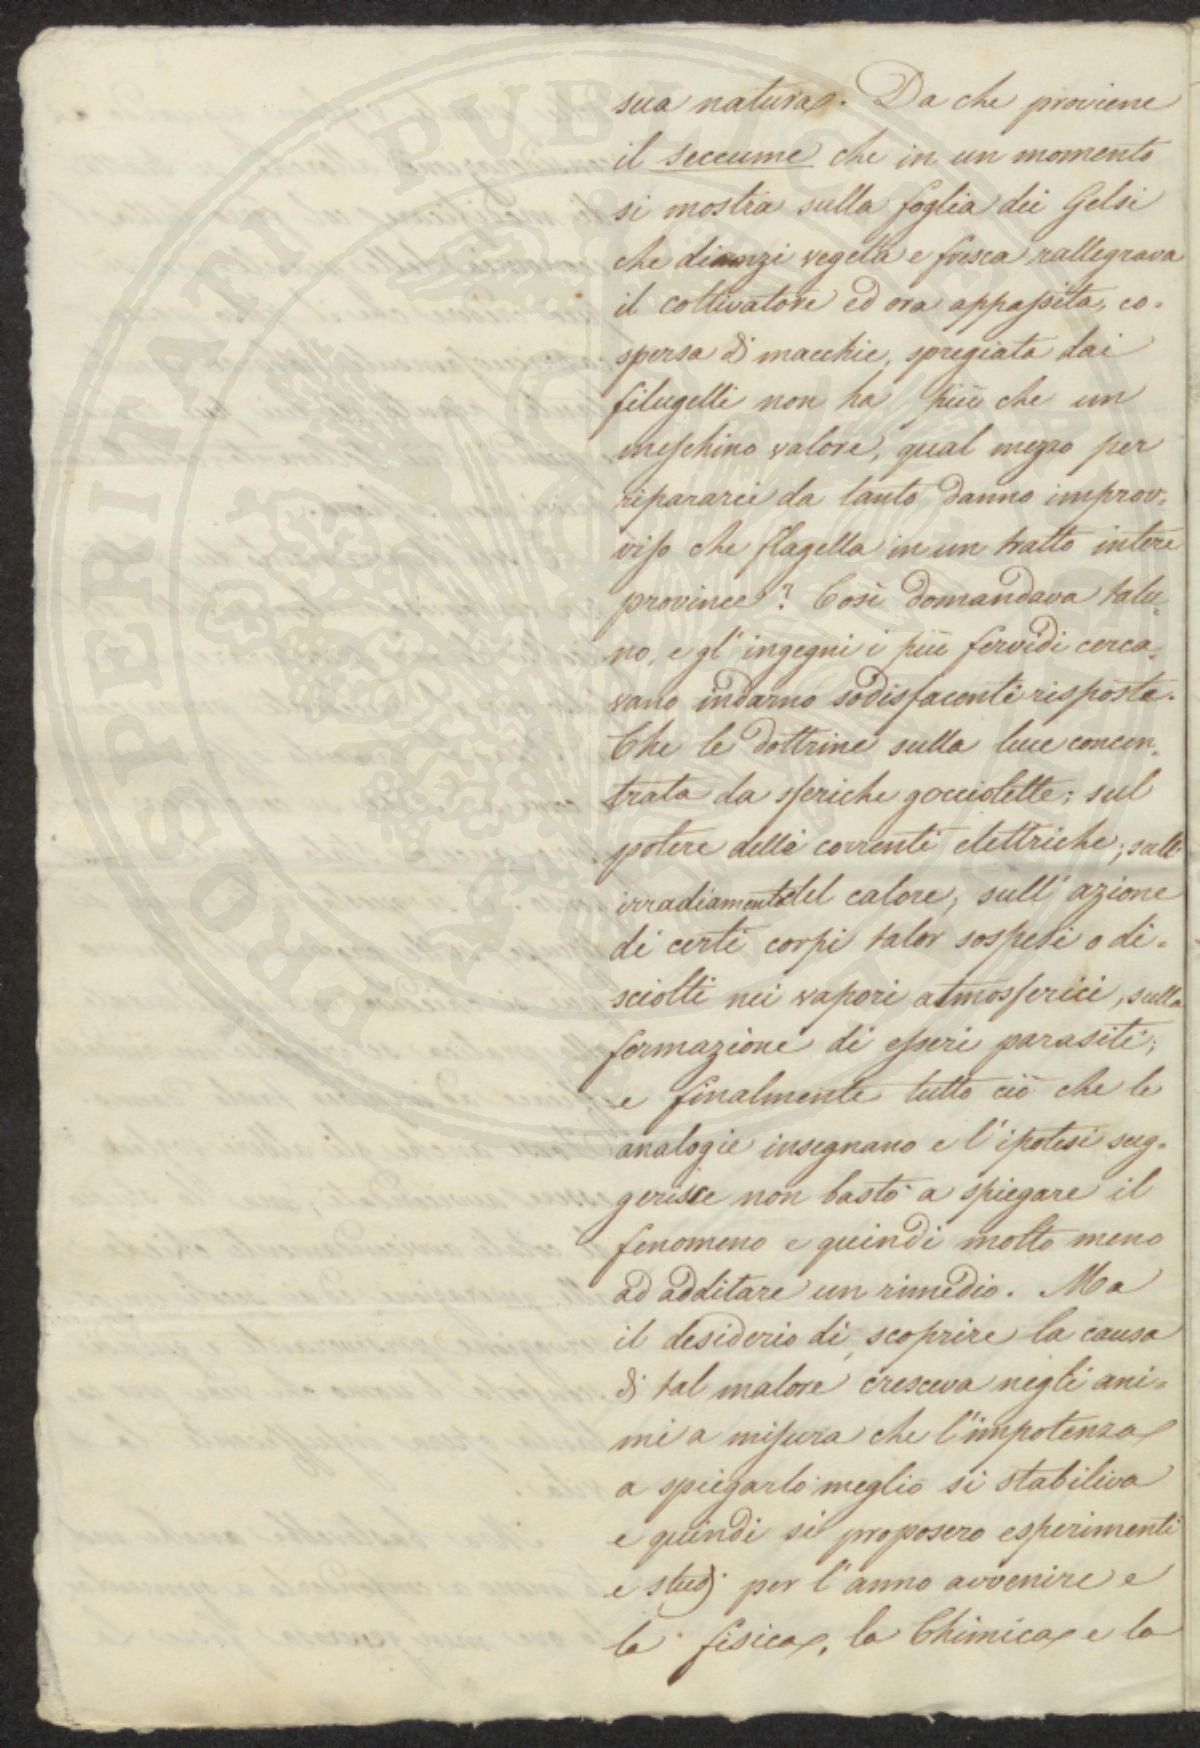 sua natura. Da che proviene
il seccume che in un momento
si mostra sulla foglia dei Gelsi
che dianzi vegeta e fresca rallegrava
il coltivatore ed ora appassita, co-
spersa di macchie, spregiata dai
filugelli non ha più che un
meschino valore, qual mezzo per
ripararci da tanto danno improv-
viso che flagella in un tratto intere
province? Così domandava talu-
no, e gl'ingegni i più fervidi cerca-
vano indarno sodisfacenti risposte.
Che le dottrine sulla luce concen-
trata da sferiche gocciolette; sul
potere delle correnti elettriche; sull'
irradiamento del calore, sull'azione
di certi corpi talor sospesi o di-
sciolti nei vapori atmosferici, sulla
formazione di esseri parasiti;
e finalmente tutto ciò che le
analogie insegnano e l'ipotesi sug-
gerisce non bastò a spiegare il
fenomeno e quindi molto meno
ad additare un rimedio. Ma
il desiderio di scoprire la causa
di tal malore cresceva negli ani-
mi a misura che l'impotenza
a spiegarlo meglio si stabiliva
e quindi si proposero esperimenti
e studj per l'anno avvenire e
la fisica, la Chimica e la
PROSPERITATI PUBLICAE